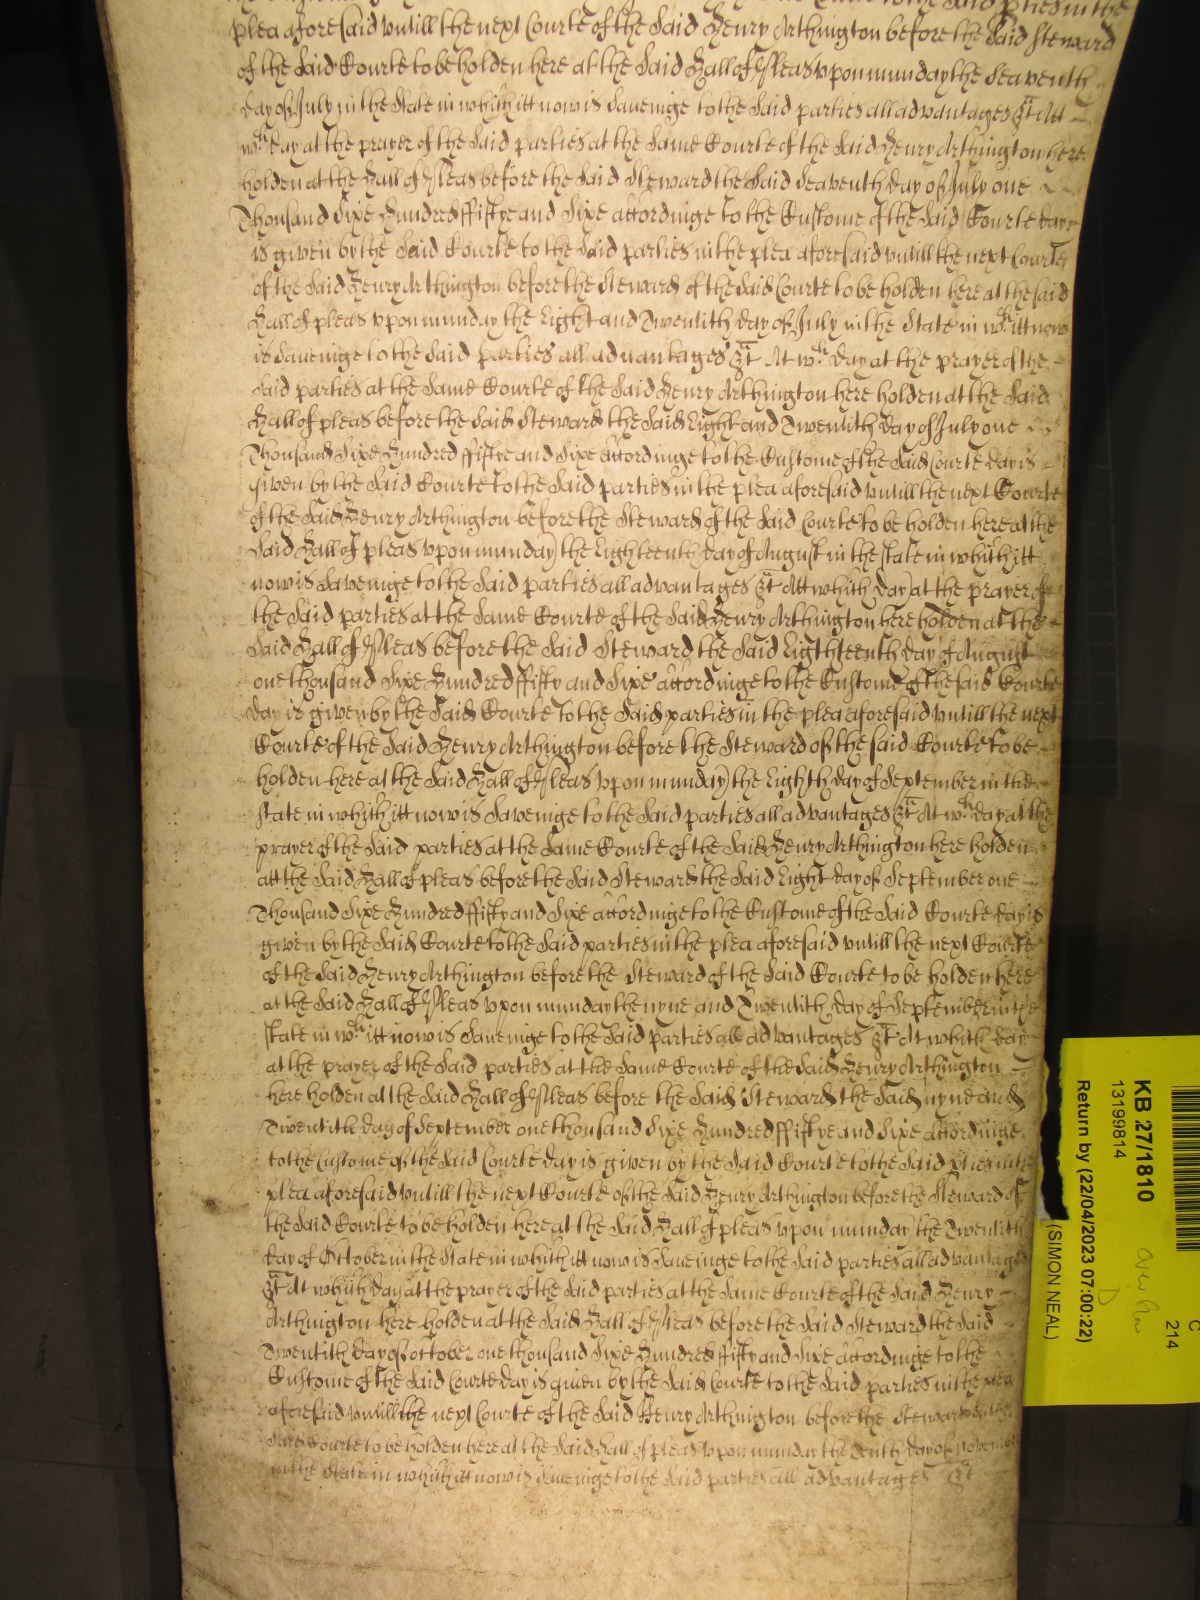 to the said pties in the
plea aforesaid vntill the next Courte of the said Henry Arthington before the said Steward
of the said Courte to be holden here at the said Hall of Pleas vpon munday the seaventh
day of July in the state in which itt now is saveinge to the said parties all advantages &c Att
wch day at the prayer of the said parties at the same Courte of the said Henry Arthington here
holden at the Hall of Pleas before the said Steward the said seaventh day of July one
Thousand sixe hundred fiftye and sixe accordinge to the Custome of the said Courte day
is given by the said Courte to the said parties in the plea aforesaid vntill the next Courte
of the said Henry Arthington before the Steward of the said Courte to be holden here at the said
Hall of pleas vpon munday the Eight and Twentith day of July in the state in wch itt now
is saveinge to the said parties all aduantages &c At wch day at the prayer of the
said parties at the same Courte of the said Henry Arthington here holden at the said
Hall of pleas before the said Steward the said Eight and Twentith day of July one
Thousand sixe hundred fiftye and sixe accordinge to the Custome of the said Courte day is
given by the said Courte to the said parties in the plea aforesaid vntill the next Courte
of the said Henry Arthington before the Steward of the said Courte to be holden here at the
said Hall of pleas vpon munday the Eighteenth day of August in the state in which itt
now is saveinge to the said parties all advantages &c Att which day at the prayer of
the said parties at the same Courte of the said Henry Arthington here holden at the
said Hall of Pleas before the said Steward the said Eighteenth day of August
one thousand sixe hundred fifty and sixe accordinge to the Custome of the said Courte
day is given by the said Courte to the said parties in the plea aforesaid vntill the next
Courte of the said Henry Arthington before the Steward of the said Courte to be
holden here at the said Hall of Pleas vpon munday the Eighth day of September in the
state in which itt now is saveinge to the said parties all advantages &c At wch day at the
prayer of the said parties at the same Courte of the said Henry Arthington here holden
att the said Hall of pleas before the said Steward the said Eight day of September one
Thousand sixe hundred fifty and sixe accordinge to the Custome of the said Courte day is
given by the said Courte to the said parties in the plea aforesaid vntill the next Courte
of the said Henry Arthington before the Steward of the said Courte to be holden here
at the said Hall of Pleas vpon munday the nyne and Twentith day of September in the
state in wch itt now is saveinge to the said parties all advantages &c At which day
at the prayer of the said parties at the same Courte of the said Henry Arthington
here holden at the said Hall of Pleas before the said Steward the said nyne and
Twentith day of September one thousand sixe hundred fiftye and sixe accordinge
to the Custome of the said Courte day is given by the said Courte to the said pties in the
plea aforesaid vntill the next Courte of the said Henry Arthington before the Steward of
the said Courte to be holden here at the said Hall of pleas vpon munday the Twentith
day of October in the state in which itt now is saveinge to the said parties all advantages
&c At which day at the prayer of the said parties at the same Courte of the said Henry
Arthington here holden at the said Hall of Pleas before the said Steward the said
Twentith day of October one thousand sixe hundred fifty and sixe accordinge to the
Custome of the said Courte day is given by the said Courte to the said parties in the plea
aforesaid vntill the next Courte of the said Henry Arthington before the Steward of the
said Courte to be holden here at the said Hall of pleas vpon munday the tenth day of November
in the state in which itt now is saveinge to the said parties all advantages &c
KB 27/1810
13199814
Return by (22/04/2023 07:00:22)
(SIMON NEAL)
C
214